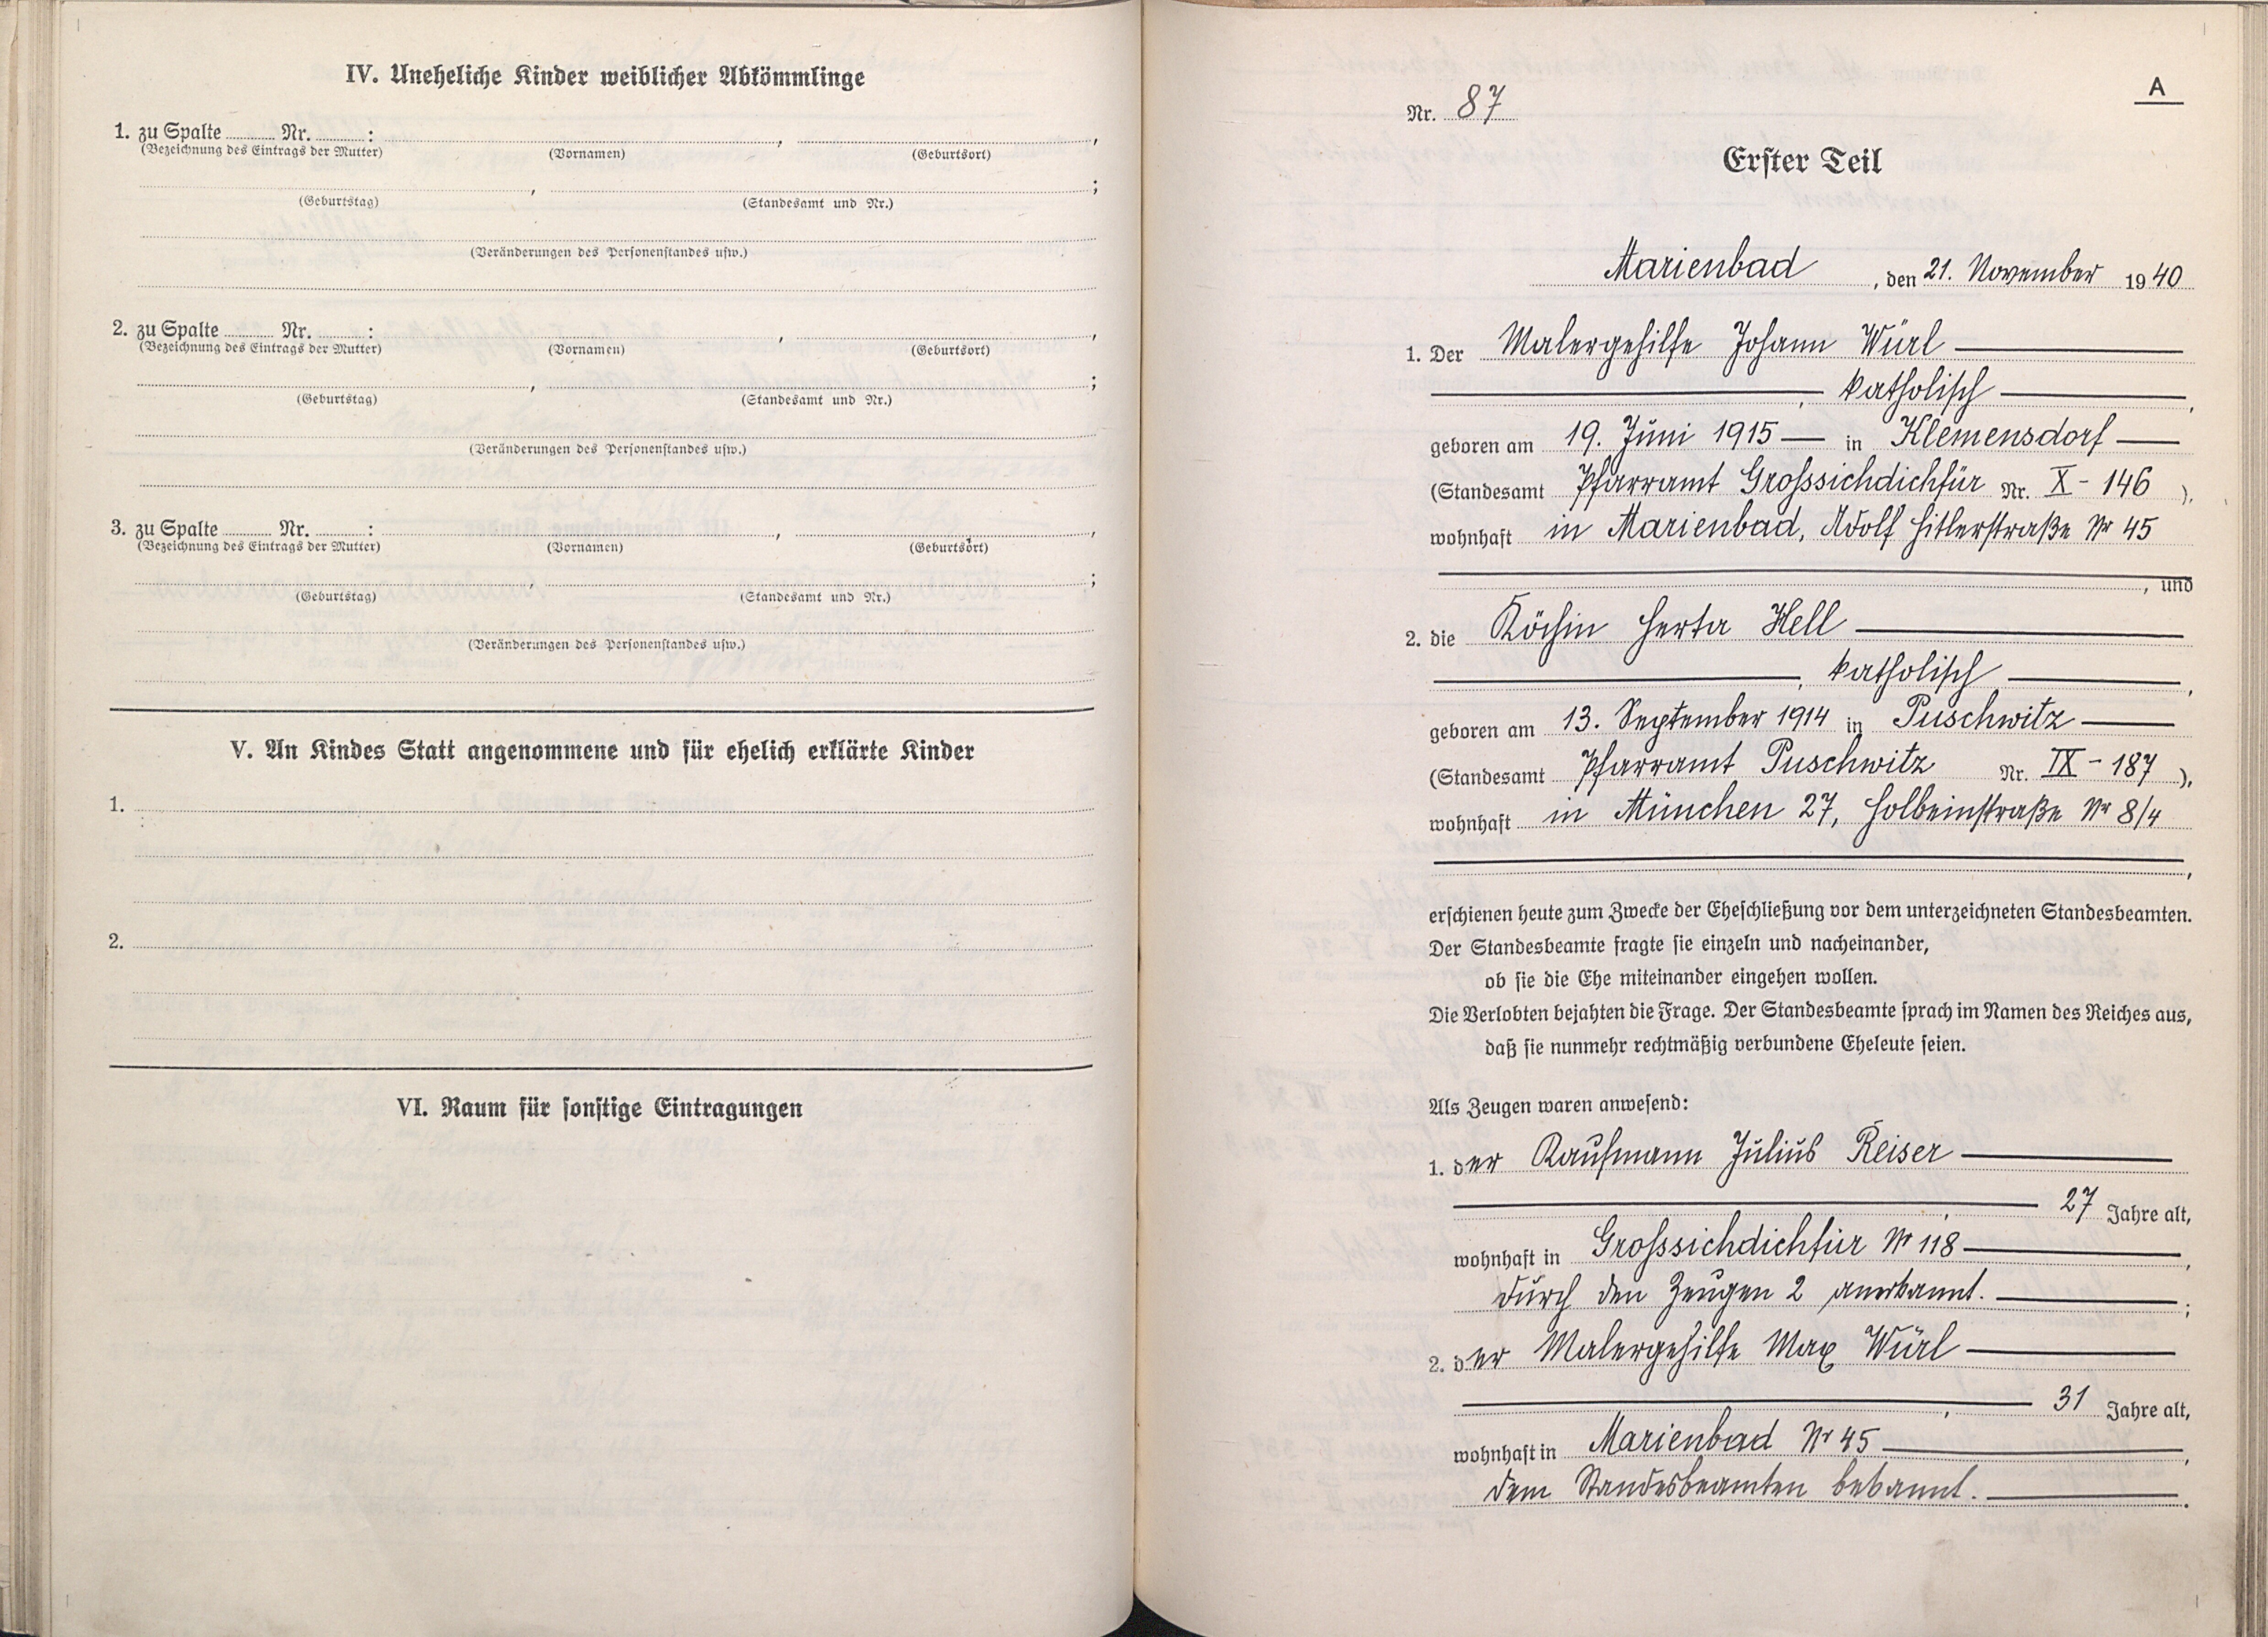 IV. Uneheliche Kinder weiblicher Abkömmlinge
1. zu Spalte ........ Nr. ........ : ........ , ........ ,
(Bezeichnung des Eintrags der Mutter) (Vornamen) (Geburtsort)
........ , ........ ;
(Geburtstag) (Standesamt und Nr.)
(Veränderungen des Personenstandes usw.)
2. zu Spalte ........ Nr. ........ : ........ , ........ ,
(Bezeichnung des Eintrags der Mutter) (Vornamen) (Geburtsort)
........ , ........ ;
(Geburtstag) (Standesamt und Nr.)
(Veränderungen des Personenstandes usw.)
3. zu Spalte ........ Nr. ........ : ........ , ........ ,
(Bezeichnung des Eintrags der Mutter) (Vornamen) (Geburtsort)
........ , ........ ;
(Geburtstag) (Standesamt und Nr.)
(Veränderungen des Personenstandes usw.)
V. An Kindes Statt angenommene und für ehelich erklärte Kinder
1.
2.
VI. Raum für sonstige Eintragungen
A
Nr. 87
Erster Teil
Marienbad , den 21. November 1940
1. Der Malergehilfe Johann Würl
, katholisch ,
geboren am 19. Juni 1915 in Klemensdorf
(Standesamt Pfarramt Grosssichdichfür Nr. X - 146 ),
wohnhaft in Marienbad, Adolf Hitlerstraße Nr 45
, und
2. die Köchin Herta Hell
, katholisch ,
geboren am 13. September 1914 in Puschwitz
(Standesamt Pfarramt Puschwitz Nr. IX - 187 ),
wohnhaft in München 27, Holbeinstraße Nr 8/4
,
erschienen heute zum Zwecke der Eheschließung vor dem unterzeichneten Standesbeamten.
Der Standesbeamte fragte sie einzeln und nacheinander,
ob sie die Ehe miteinander eingehen wollen.
Die Verlobten bejahten die Frage. Der Standesbeamte sprach im Namen des Reiches aus,
daß sie nunmehr rechtmäßig verbundene Eheleute seien.
Als Zeugen waren anwesend:
1. der Kaufmann Julius Reiser
, 27 Jahre alt,
wohnhaft in Grosssichdichfür Nr 118 ,
durch den Zeugen 2 anerkannt. ;
2. der Malergehilfe Max Würl
, 31 Jahre alt,
wohnhaft in Marienbad Nr 45 ,
dem Standesbeamten bekannt. .